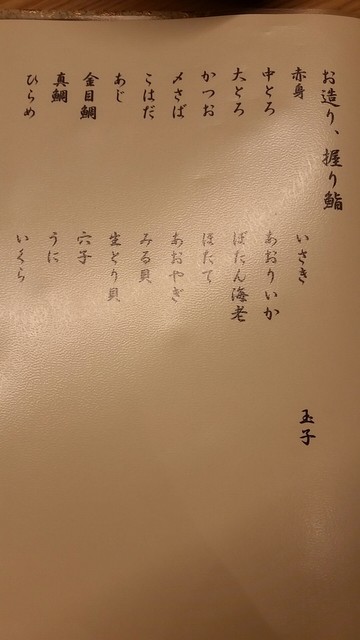 お造り、握り鮨
赤身
中とろ
大とろ
かつお
〆さば
こはだ
あじ
金目鯛
真鯛
ひらめ
いさき
あおりいか
ぼたん海老
ほたて
あおやぎ
みる貝
生とり貝
穴子
うに
いくら
玉子